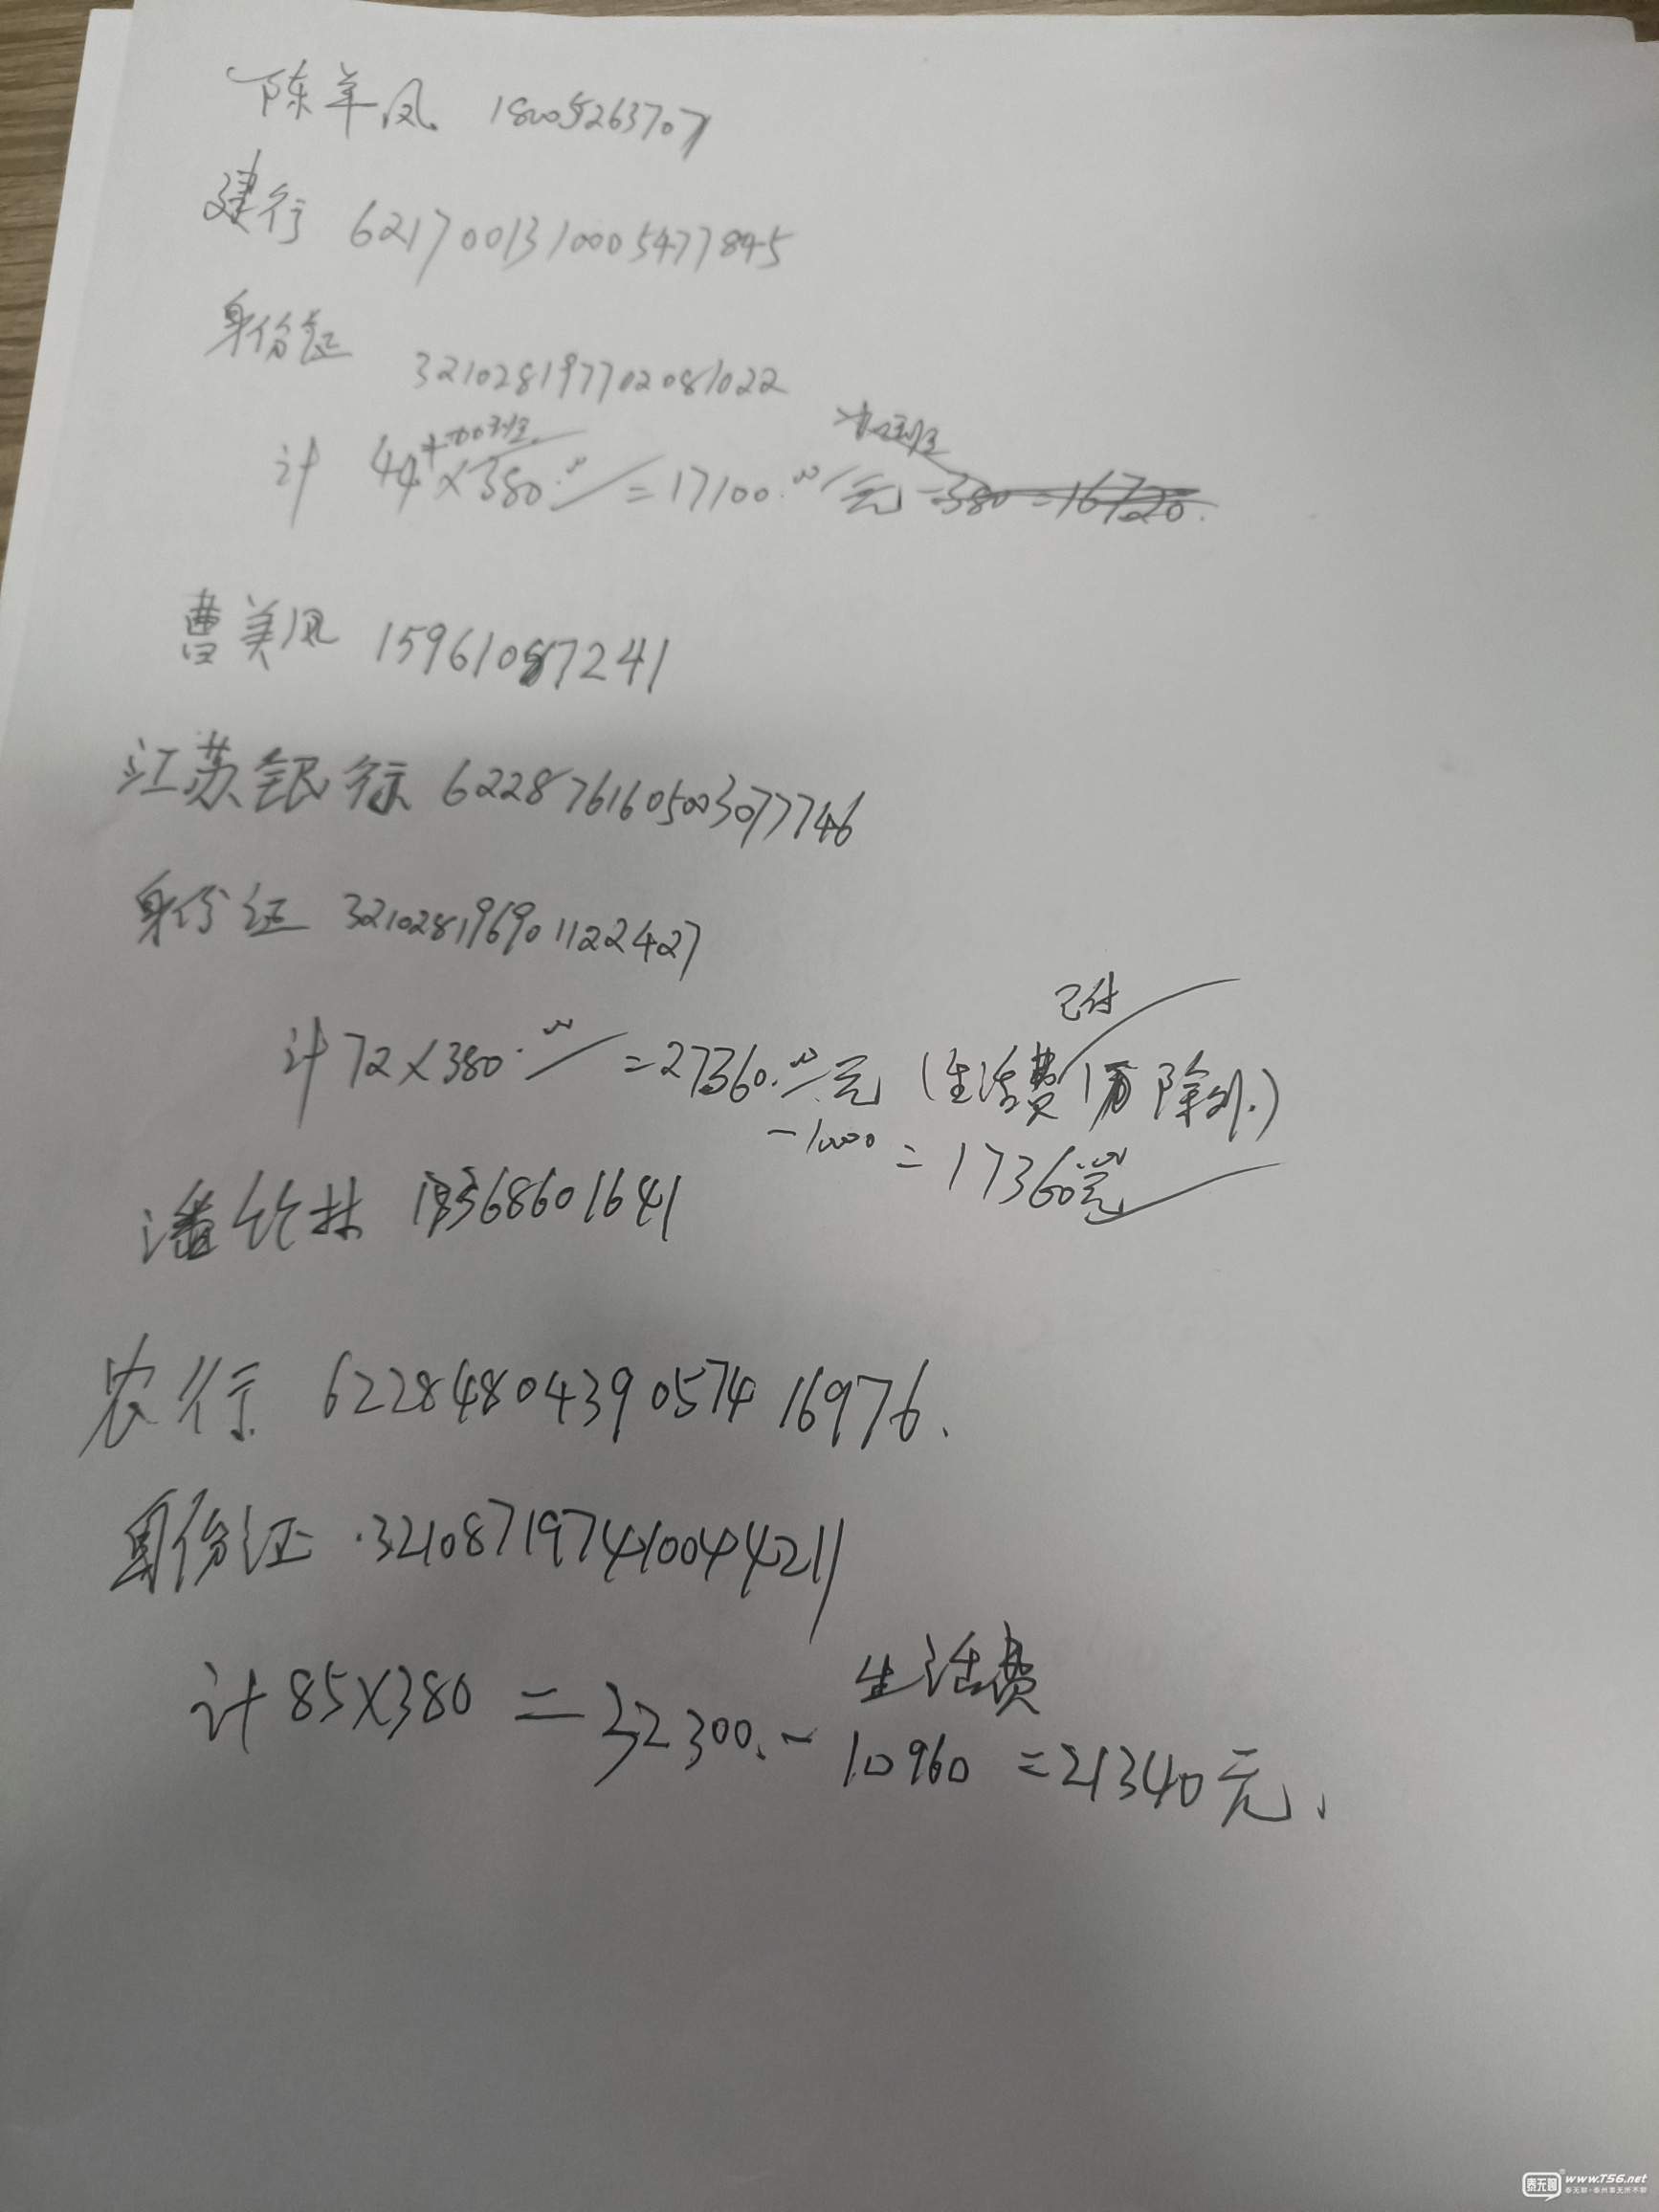 陈羊凤 18005263707
建行 6217001310005477845
身份证 321028197702081022
计 44+加3班×380.00=17100.00元 -380=16720.
曹美凤 15961087241
江苏银行 6228761605003077746
身份证 321028196901122427
已付
计72×380.00=27360.00元(生活费1万除外.)
-10000 =17360元
潘竹林 18368601641
农行 6228480439057416976.
身份证.321087197410044211
生活费
计85×380=32300.-10960=21340元.
泰无聊 www.T56.net
泰无聊·泰州事无所不聊